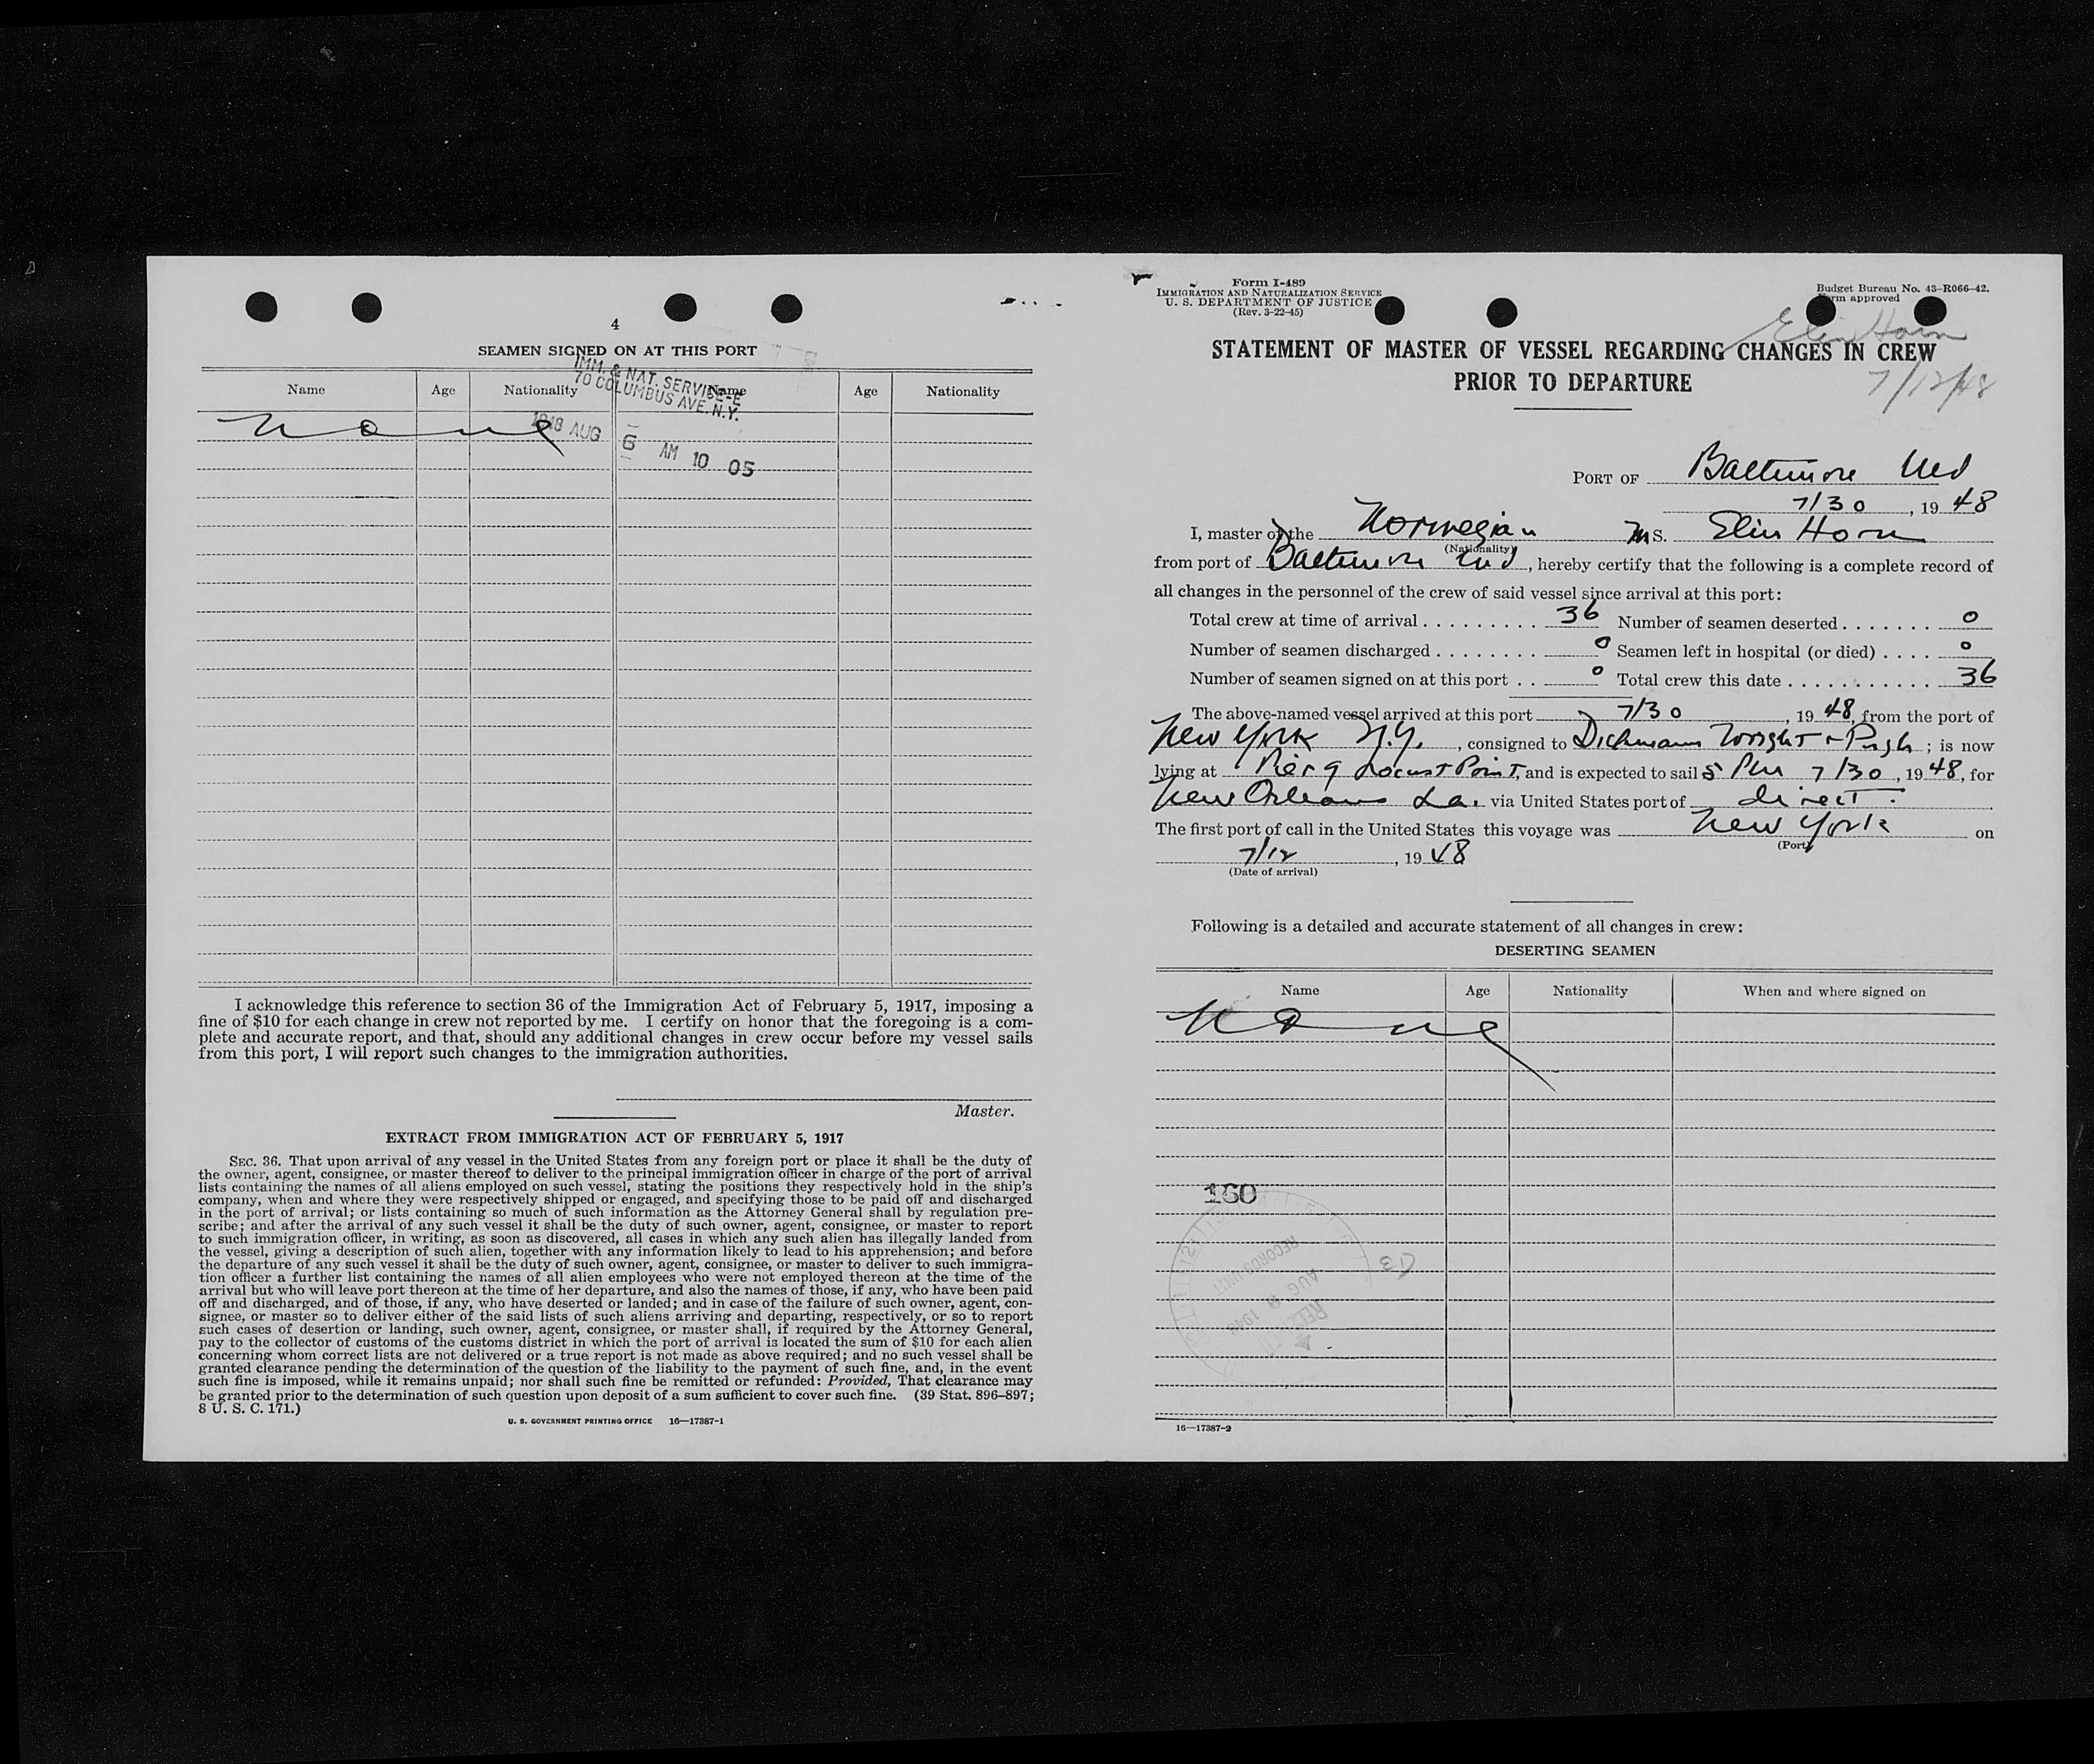 4
SEAMEN SIGNED ON AT THIS PORT
Name Age Nationality Name Age Nationality
IMM. & NAT. SERVICE-E
70 COLUMBUS AVE. N.Y.
None
AUG 6 AM 10 05
I acknowledge this reference to section 36 of the Immigration Act of February 5, 1917, imposing a
fine of $10 for each change in crew not reported by me. I certify on honor that the foregoing is a com-
plete and accurate report, and that, should any additional changes in crew occur before my vessel sails
from this port, I will report such changes to the immigration authorities.
Master.
EXTRACT FROM IMMIGRATION ACT OF FEBRUARY 5, 1917
SEC. 36. That upon arrival of any vessel in the United States from any foreign port or place it shall be the duty of
the owner, agent, consignee, or master thereof to deliver to the principal immigration officer in charge of the port of arrival
lists containing the names of all aliens employed on such vessel, stating the positions they respectively hold in the ship's
company, when and where they were respectively shipped or engaged, and specifying those to be paid off and discharged
in the port of arrival; or lists containing so much of such information as the Attorney General shall by regulation pre-
scribe; and after the arrival of any such vessel it shall be the duty of such owner, agent, consignee, or master to report
to such immigration officer, in writing, as soon as discovered, all cases in which any such alien has illegally landed from
the vessel, giving a description of such alien, together with any information likely to lead to his apprehension; and before
the departure of any such vessel it shall be the duty of such owner, agent, consignee, or master to deliver to such immigra-
tion officer a further list containing the names of all alien employees who were not employed thereon at the time of the
arrival but who will leave port thereon at the time of her departure, and also the names of those, if any, who have been paid
off and discharged, and of those, if any, who have deserted or landed; and in case of the failure of such owner, agent, con-
signee, or master so to deliver either of the said lists of such aliens arriving and departing, respectively, or so to report
such cases of desertion or landing, such owner, agent, consignee, or master shall, if required by the Attorney General,
pay to the collector of customs of the customs district in which the port of arrival is located the sum of $10 for each alien
concerning whom correct lists are not delivered or a true report is not made as above required; and no such vessel shall be
granted clearance pending the determination of the question of the liability to the payment of such fine, and, in the event
such fine is imposed, while it remains unpaid; nor shall such fine be remitted or refunded: Provided, That clearance may
be granted prior to the determination of such question upon deposit of a sum sufficient to cover such fine. (39 Stat. 896–897;
8 U. S. C. 171.)
U. S. GOVERNMENT PRINTING OFFICE 16—17387-1
Form I-489
IMMIGRATION AND NATURALIZATION SERVICE
U. S. DEPARTMENT OF JUSTICE
(Rev. 3-22-45)
Budget Bureau No. 43-R066-42.
Form approved
Elin Horn
STATEMENT OF MASTER OF VESSEL REGARDING CHANGES IN CREW
PRIOR TO DEPARTURE
7/12/48
PORT OF Baltimore Md
7/30, 1948
I, master of the Norwegian MS. Elin Horn
(Nationality)
from port of Baltimore Md, hereby certify that the following is a complete record of
all changes in the personnel of the crew of said vessel since arrival at this port:
Total crew at time of arrival . . . . . . . . . 36 Number of seamen deserted . . . . . . . 0
Number of seamen discharged . . . . . . . . 0 Seamen left in hospital (or died) . . . . 0
Number of seamen signed on at this port . . 0 Total crew this date . . . . . . . . . . . . 36
The above-named vessel arrived at this port 7/30, 1948, from the port of
New York N.Y., consigned to Dichmann Wright & Pugh; is now
lying at Pier 9 Locust Point, and is expected to sail 5 PM 7/30, 1948, for
New Orleans La. via United States port of direct.
The first port of call in the United States this voyage was New York on
(Port)
7/12, 1948
(Date of arrival)
Following is a detailed and accurate statement of all changes in crew:
DESERTING SEAMEN
Name Age Nationality When and where signed on
None
160
RECORDS UNIT
AUG 9 1948
16—17387-2